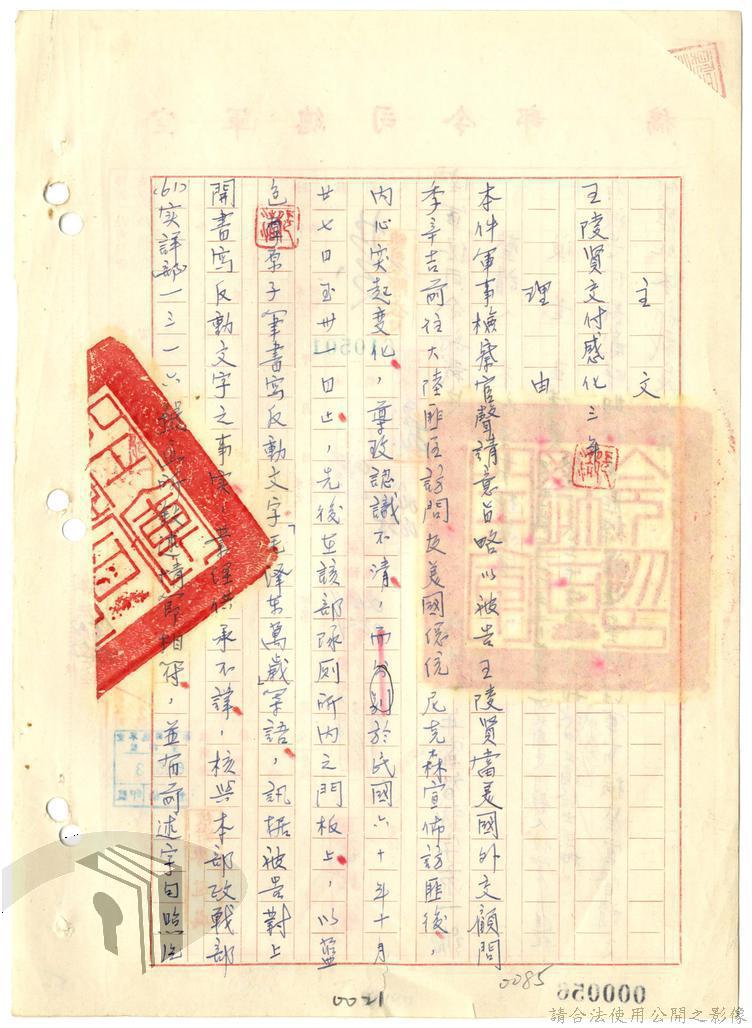 主文
王陵賢交付感化三年
理由
本件軍事檢察官聲請意旨略以被告王陵賢當美國外交顧問
季辛吉前往大陸匪區訪問及美國總統尼克森宣佈訪匪後，
內心突起變化，導致認識不清，而分別於民國六十年十月
廿七日至卅一日止，先後在該部隊厠所內之門板上，以藍
色原子筆書寫反動文字「毛泽东萬歲」等語，訊據被告對上
開書寫反動文字之事實，業經供承不諱，核與本部政戰部
(61)实評部一三一六號相符，並有前述字句照片
0085
000056
1200
請合法使用公開之影像